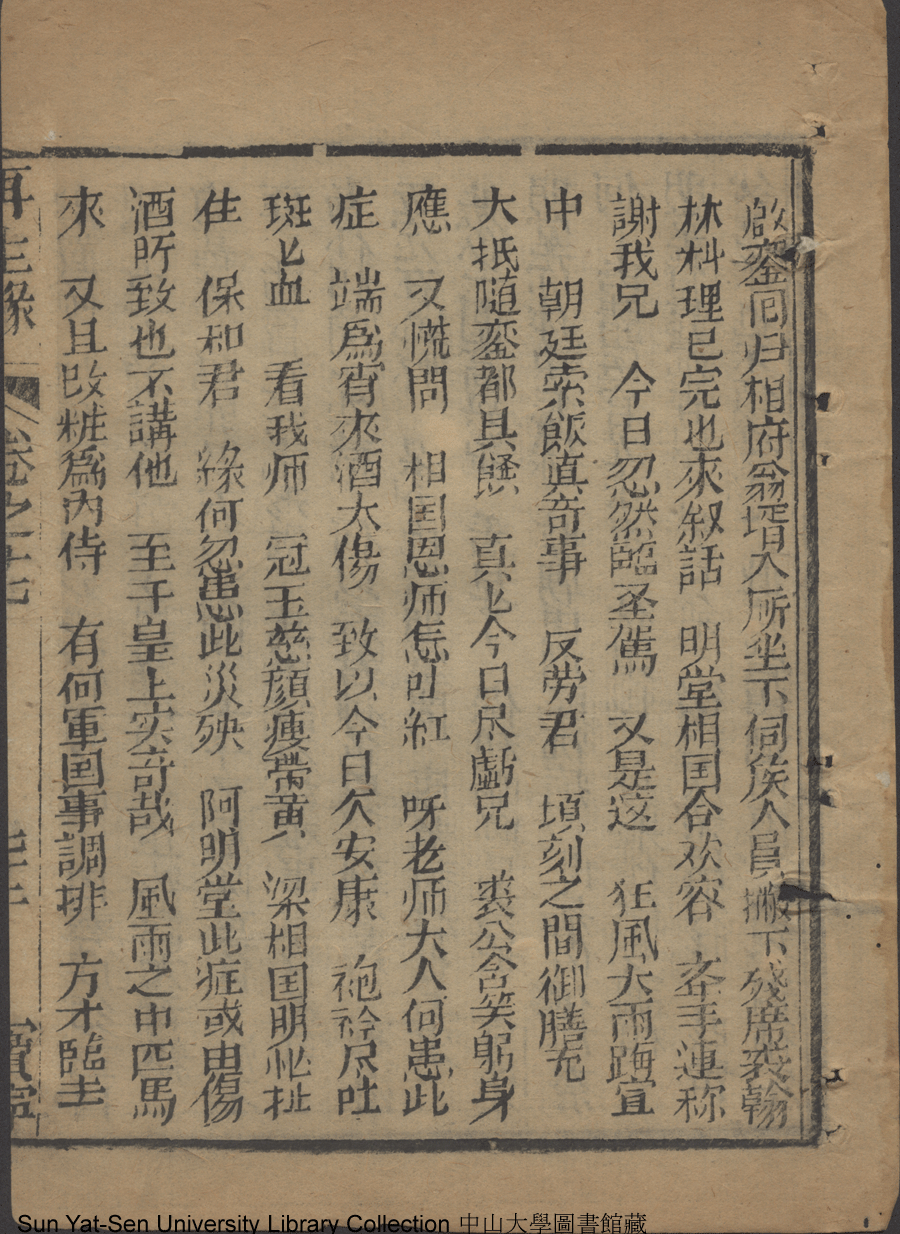 啟銮囘归相府翁壻入厛坐下伺候人員撤下殘席裘翰
林料理已完也來叙話　明堂相国合欢容　𢪔手連称
謝我兄　今日忽然臨圣駕　又是這　狂風大雨誨宜
中　朝廷索飯真奇事　反劳君　頃刻之間御膳充
大抵随銮都具饍　真〻今日尽戲兄　裘公含笑躬身
應　又慌問　相国恩师怎吐紅　呀老师大人何患此
症　端爲宵來酒太傷　致以今日欠安康　袍袊尽吐
斑〻血　看我师　冠玉慈顔瘦帶黄　梁相国明堂扯
住　保和君　緣何忽患此災殃　阿明堂此症或由傷
酒所致也不講他　至于皇上实奇哉　風雨之中匹馬
來　又且改粧爲内侍　有何軍国事調排　方才臨圭
再生緣　卷之十七　寶寧
Sun Yat-Sen University Library Collection 中山大學圖書館藏